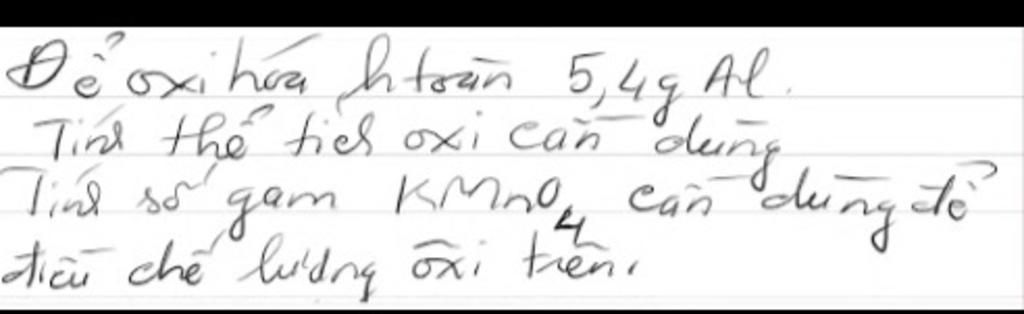 Để oxi hóa h toàn 5,4g Al.
Tính thể tích oxi cần dùng
Tính số gam KMnO4 cần dùng để
điều chế lượng oxi trên.